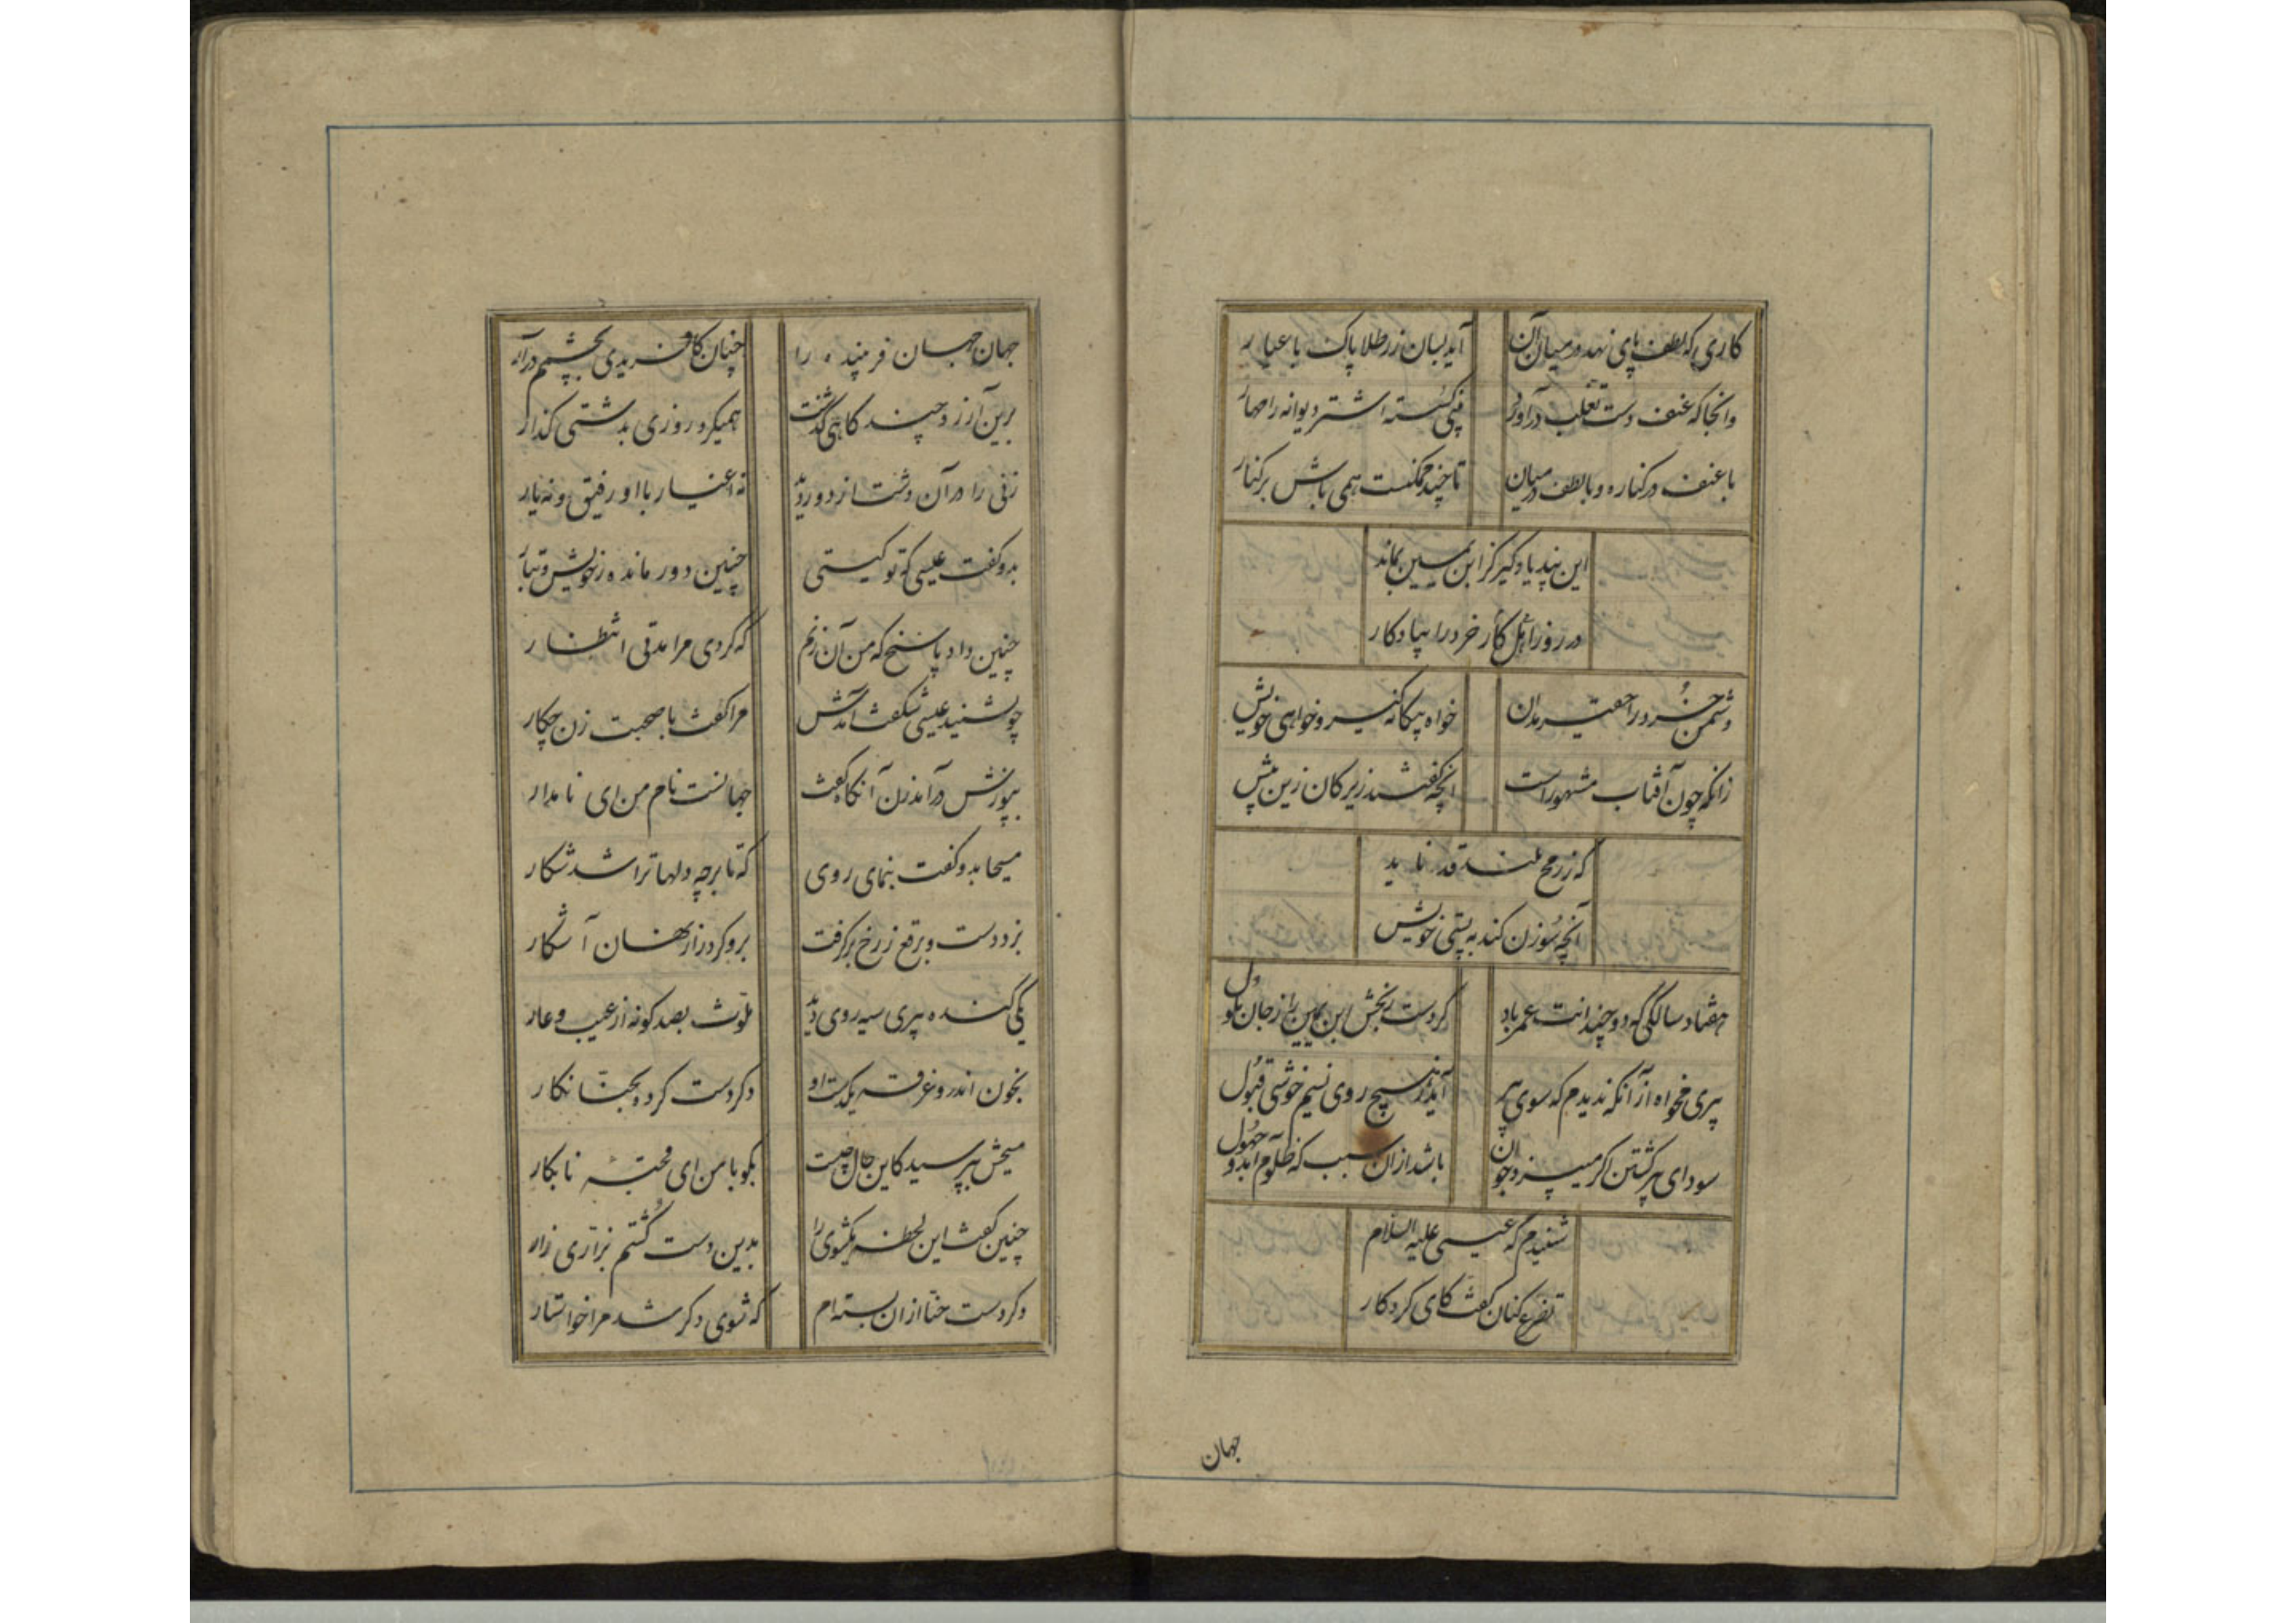 کاری که لطف پای نهد در میان آن آید بسان زر طلا پاک با عیار
وانجا که عنف دست تغلب درآورد بینی گسسته اشتر دیوانه را مهار
با عنف در کناره و با لطف در میان تا چند ممکنست همی باش برکنار
این پند یاد گیر کز ابن یمین بماند
در روز اهل کار خرد را بیادکار
دشمن خرد را حقیر مدان خواه بیکانه کیر و خواهی خویش
زانکه چون آفتاب مشهور است آنچه کفتند زیرکان زین پیش
که ز رمح بلند قد ناید
آنچه سوزن کند به پستی خویش
هفتاد سالگی که دو چندانت عمر باد کردست رنجش ابن یمین را ز جان ملول
پیری مخواه از آنکه ندیدم که سوی پیر آید ز هیچ روی نسیم خوشی قبول
سودای پیر کشتن اکر میپزد جوان باشد ازان سبب که ظلوم آمد و جهول
شنیدم که عیسی علیه السلام
تضرع کنان کفت کای کردکار
جهان
جهان جهان فریبنده را چنان کافریدی بچشم درآر
برین آرزو چند کاهی گذشت همیکرد روزی بدشتی کذار
زنی را در آن دشت از دور دید نه اغیار با او رفیق و نه یار
بدو کفت عیسی که تو کیستی چنین دور مانده ز خویش و تبار
چنین داد پاسخ که من آن زنم که کردی مرا مدتی انتظار
چو بشنید عیسی شکفت آمدش مرا کفت با صحبت زن چکار
بپوزش درآمد زن آنکاه کفت جهانست نام من ای نامدار
مسیحا بدو کفت بنمای روی که تا بر چه دلها ترا شد شکار
بزد دست و برقع ز رخ برکرفت برو کرد راز نهان آشکار
یکی کنده پیری سیه روی دید ملوث بصد کونه از عیب و عار
بخون اندرون غرقه یکدست او دکر دست کرده بحنّا نکار
مسیحش بپرسید کاین حال چیست بکو با من ای قحبه نابکار
چنین کفت این لحظه یکشوی را بدین دست کُشتم بزاری زار
دکر دست حنّا ازان بسته‌ام که شوی دکر شد مرا خواستار